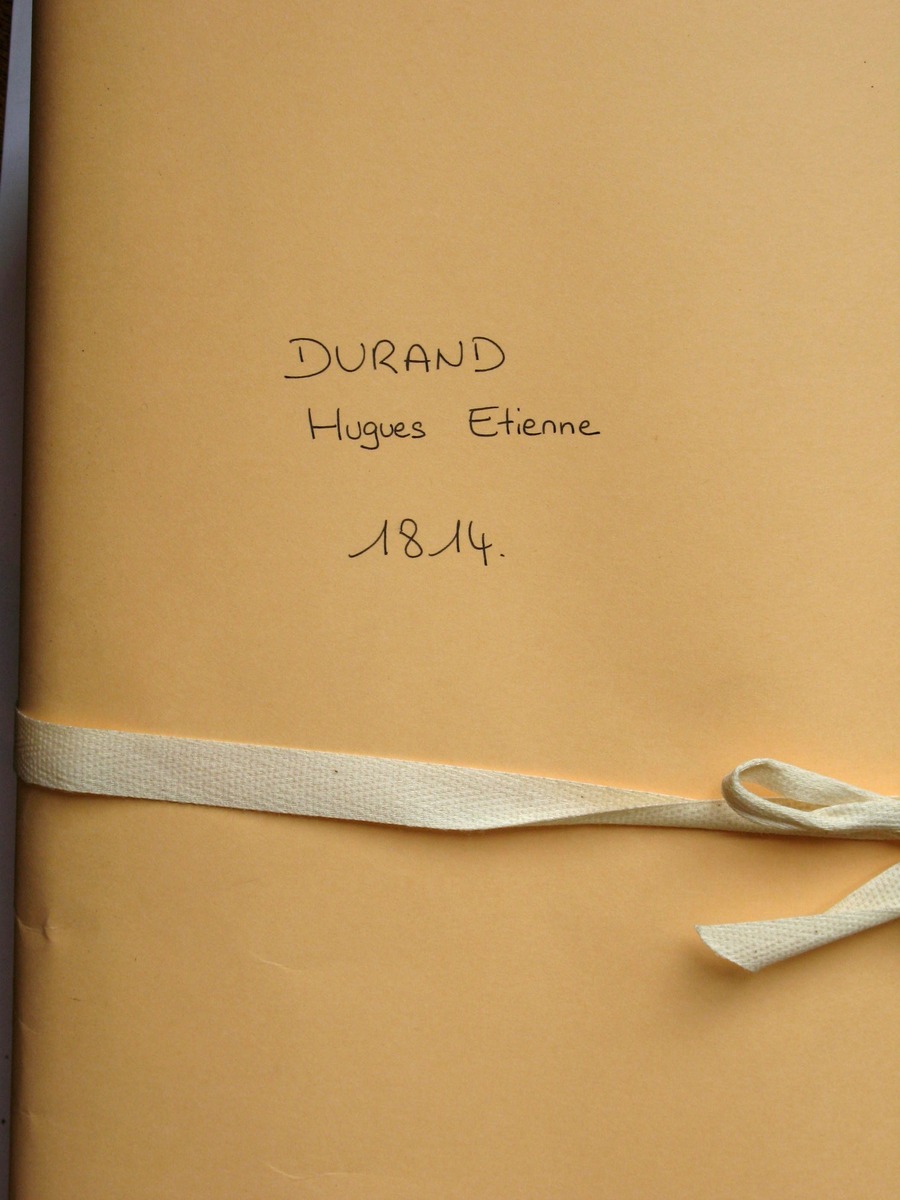 DURAND
Hugues Etienne
1814.